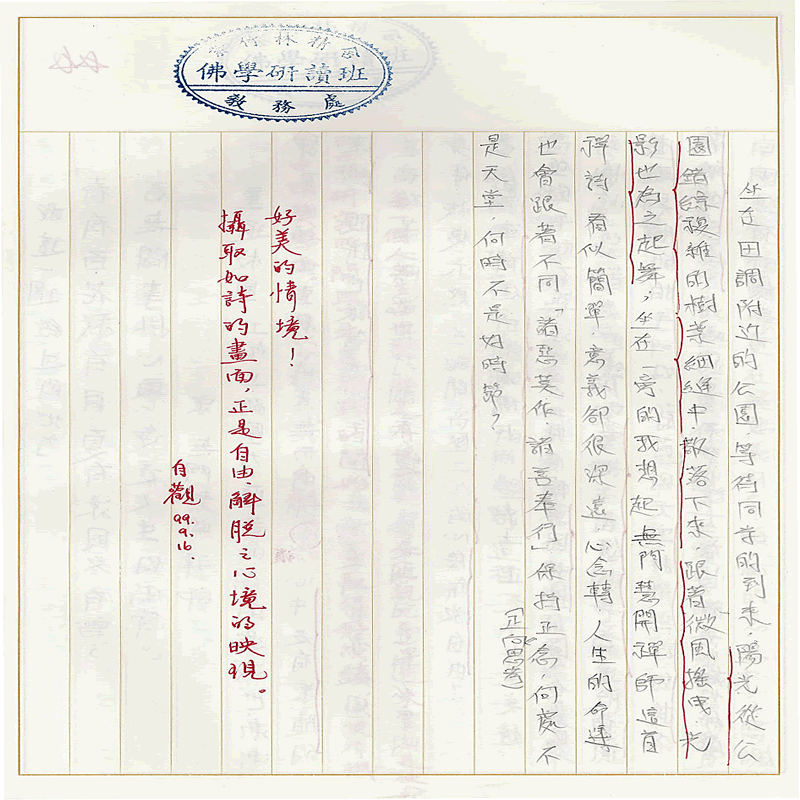 香光竹林精舍
佛學研讀班
教務處
坐在田調附近的公園等待同學的到來，陽光從公
園錯綜複雜的樹葉細縫中，散落下來，跟著微風搖曳，光
影也為之起舞；坐在一旁的我想起無門慧開禪師這首
禪詩，看似簡單，意義卻很深遠，心念轉人生的命運
也會跟著不同「諸惡莫作，諸善奉行」保持正念，何處不
(正向思考)
是天堂，何時不是好時節？
好美的情境！
攝取如詩的畫面，正是自由、解脫之心境的映現。
自觀 99.9.16.